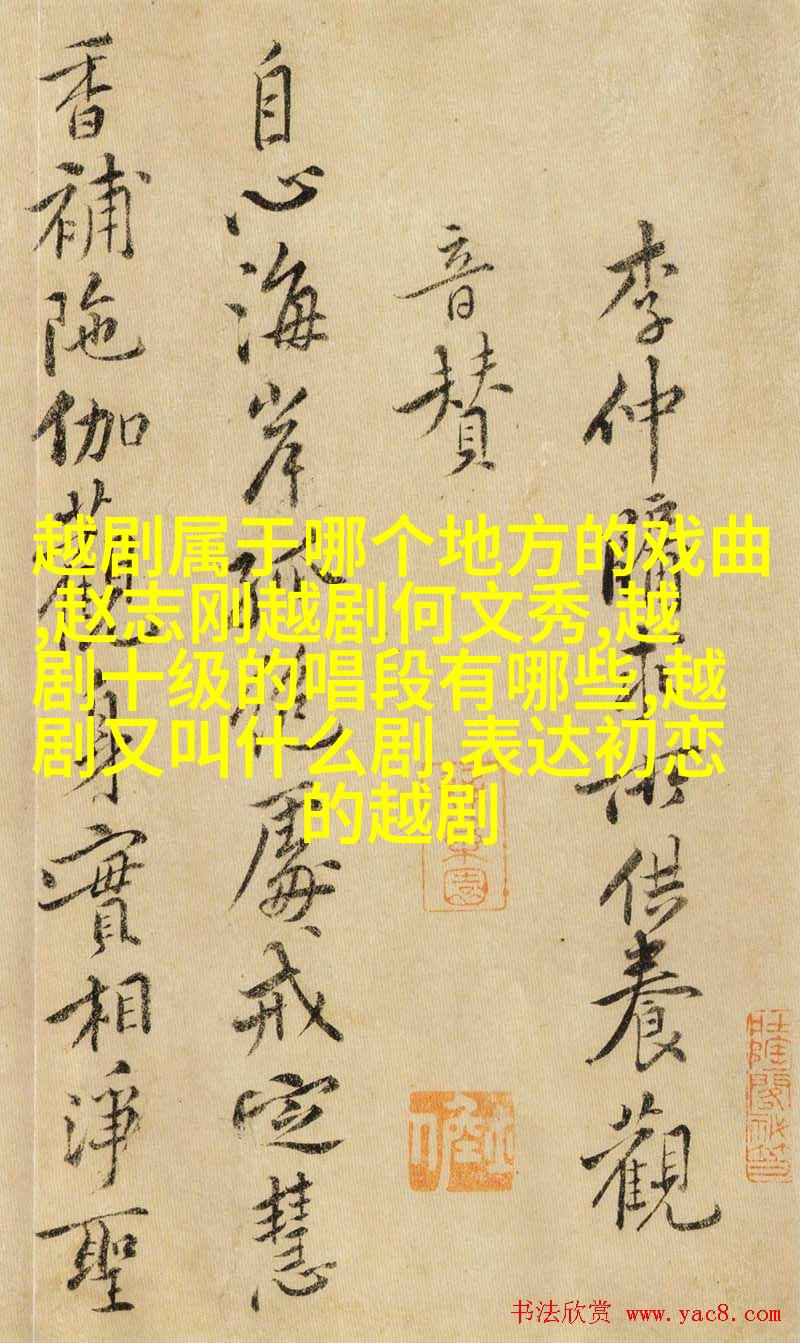 李仲賓所供養觀
音贊
自心海岸孤絕處戒定慧
香補陁伽蘓觀身實相淨聖
越剧属于哪个地方的戏曲
,赵志刚越剧何文秀,越
剧十级的唱段有哪些,越
剧又叫什么剧,表达初恋
的越剧
书法欣赏 www.yac8.com